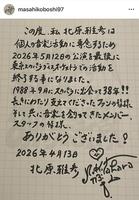 masahikoboshi97
この度、私 北原雅彦は
個人の音楽活動に専念するため
2026年5月12日の公演を最後に
東京スカパラダイスオーケストラでの活動を
終了する事になりました。
1988年9月にスカパラに出会って38年!!
長きにわたり支えてくださったファンの皆様、
そして共に音楽を奏でてきたメンバー、
スタッフの皆様、
ありがとうございました!
2026年4月13日
北原雅彦